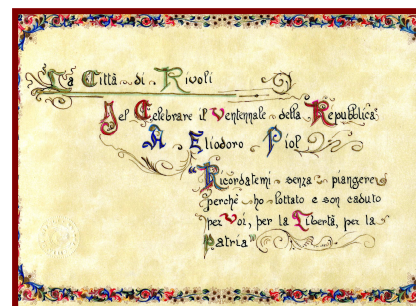 La Città di Rivoli
Nel Celebrare il Ventennale della Repubblica
A Eliodoro Piol
"Ricordatemi senza piangere
perchè ho lottato e son caduto
per Voi, per la Libertà, per la
Patria"